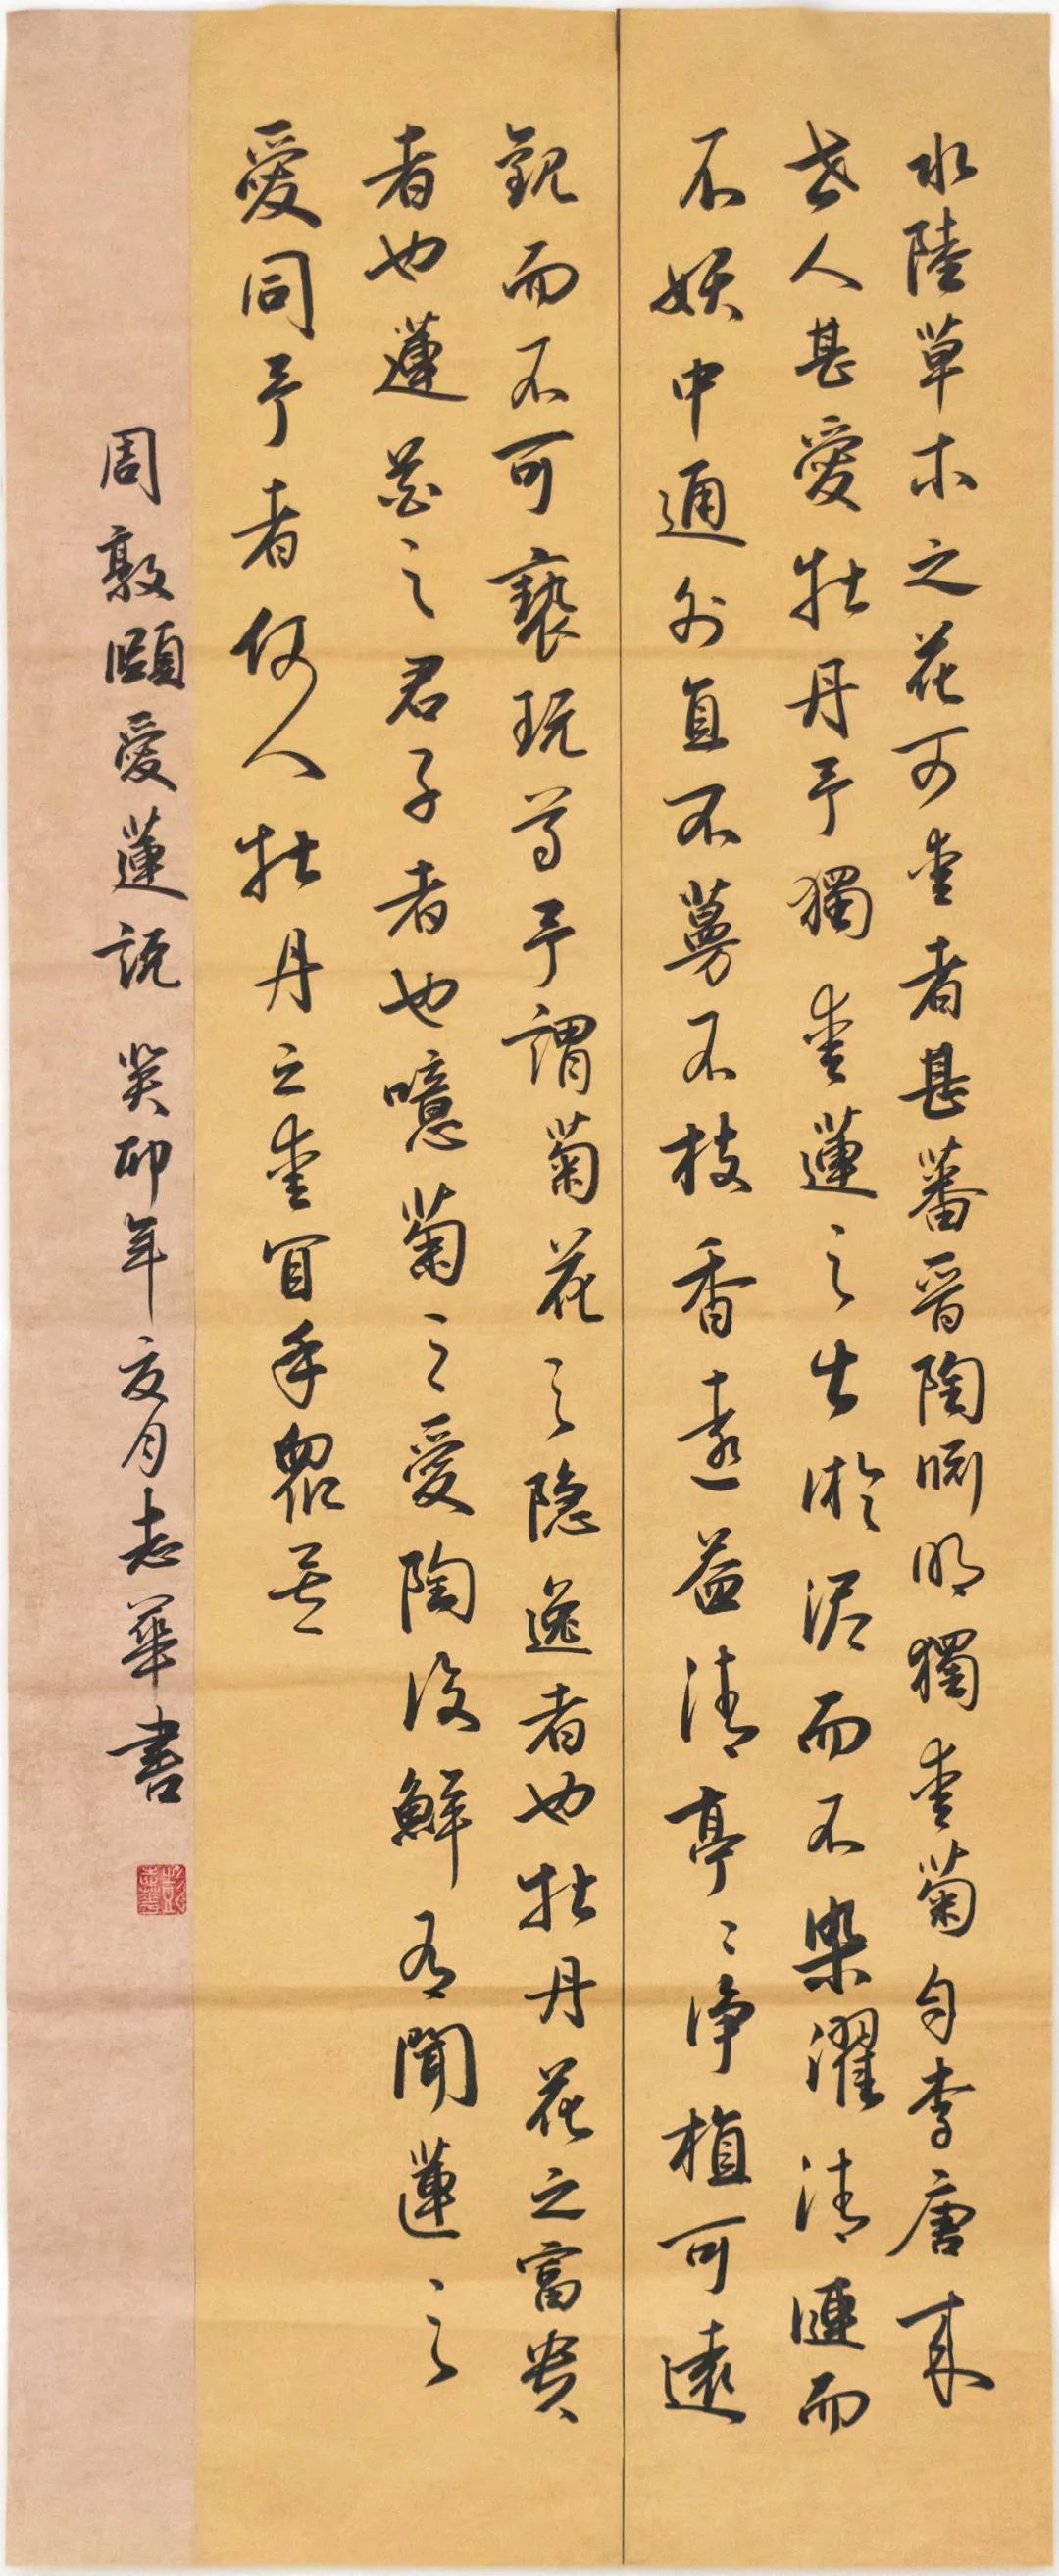 水陸草木之花可愛者甚蕃晉陶淵明獨愛菊自李唐来
世人甚愛牡丹予獨愛蓮之出淤泥而不染濯清漣而
不妖中通外直不蔓不枝香遠益清亭〻净植可遠
觀而不可褻玩焉予謂菊花之隐逸者也牡丹花之富贵
者也蓮花之君子者也噫菊之愛陶後鮮有聞蓮之
愛同予者何人牡丹之愛宜乎眾矣
周敦頤愛蓮説 癸卯年夏月志華書